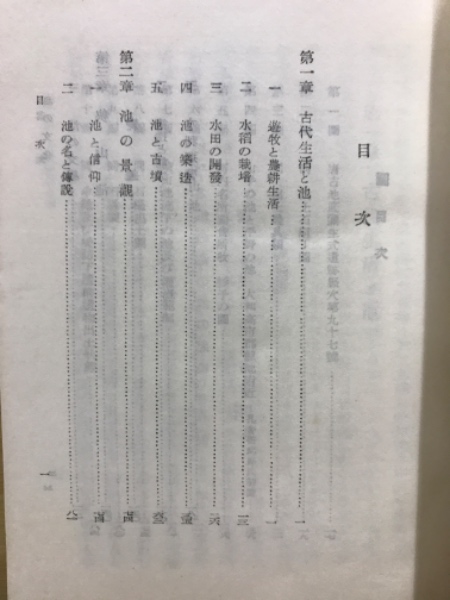 目次
第一章 古代生活と池 一
一 遊牧と農耕生活 一
二 水稻の栽培 一三
三 水田の開發 二六
四 池の築造
五 池と古墳
第二章 池の景觀
一 池と信仰
二 池の名と傳説 八一
目次 一